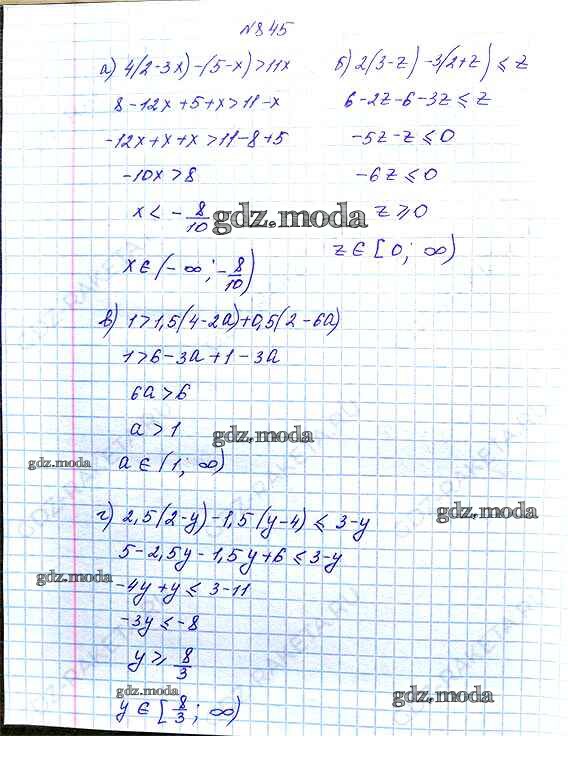 №845
а) 4(2-3x)-(5-x)>11x
8-12x+5+x>11-x
-12x+x+x>11-8+5
-10x>8
x<-8/10
x∈(-∞;-8/10)
б) 2(3-z)-3(2+z)≤z
6-2z-6-3z≤z
-5z-z≤0
-6z≤0
z≥0
z∈[0;∞)
gdz.moda
в) 1>1,5(4-2a)+0,5(2-6a)
1>6-3a+1-3a
6a>6
a>1
a∈(1;∞)
gdz.moda
gdz.moda
г) 2,5(2-y)-1,5(y-4)≤3-y
5-2,5y-1,5y+6≤3-y
-4y+y≤3-11
-3y≤-8
y≥8/3
y∈[8/3;∞)
gdz.moda
gdz.moda
gdz.moda
gdz.moda
GDZ-RAKETA.RU
GDZ-RAKETA.RU
GDZ-RAKETA.RU